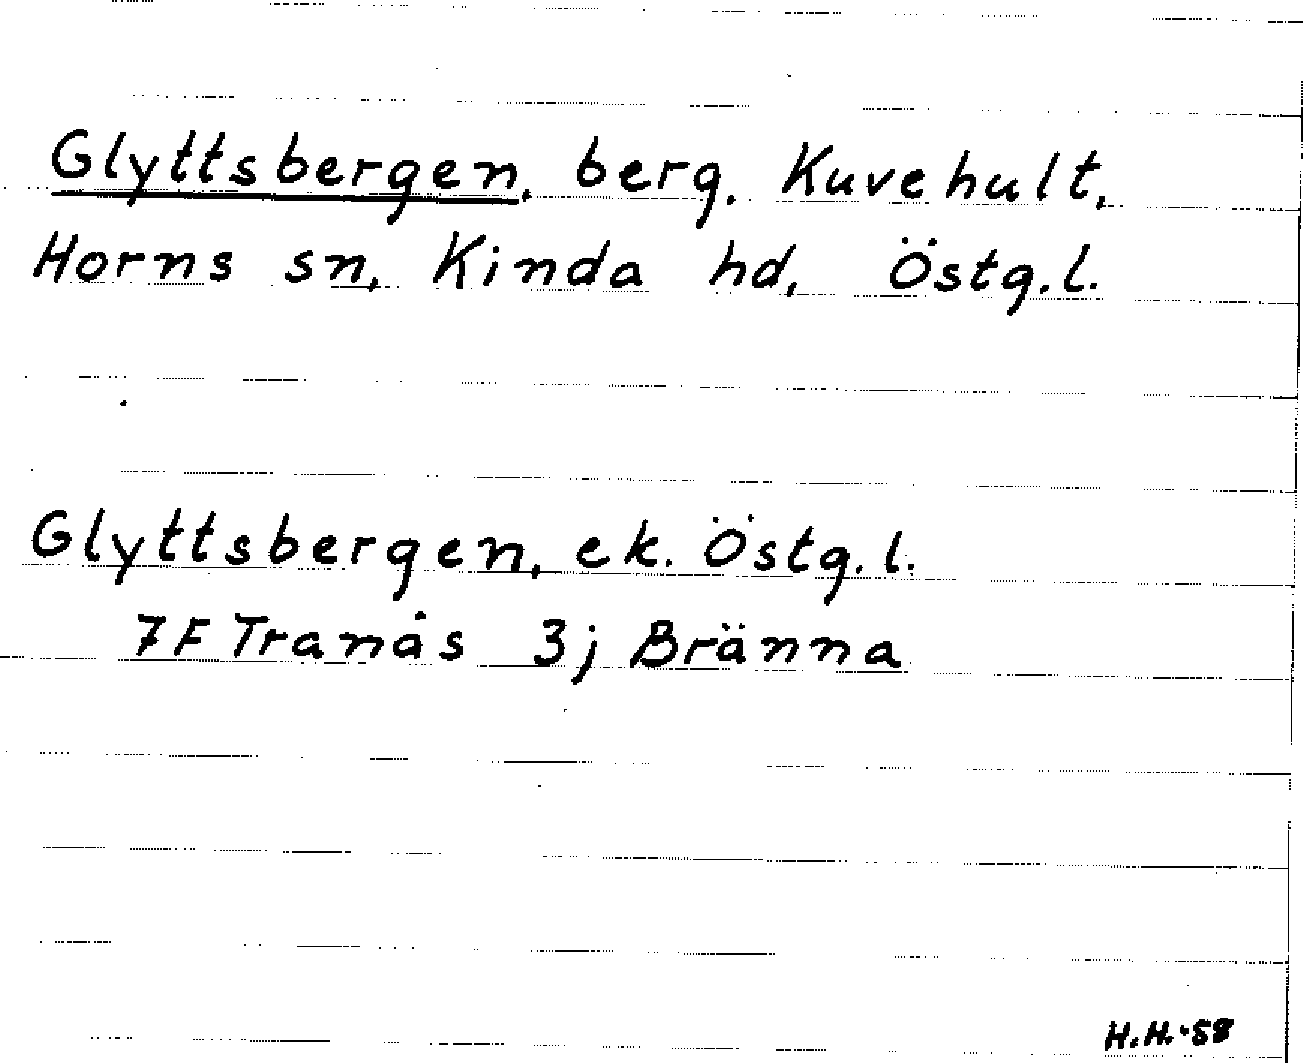 Glyttsbergen, berg, Kuvehult,
Horns sn, Kinda hd, Östg.l.
Glyttsbergen, ek. Östg.l.
7F Tranås 3j Bränna
H.H.-58